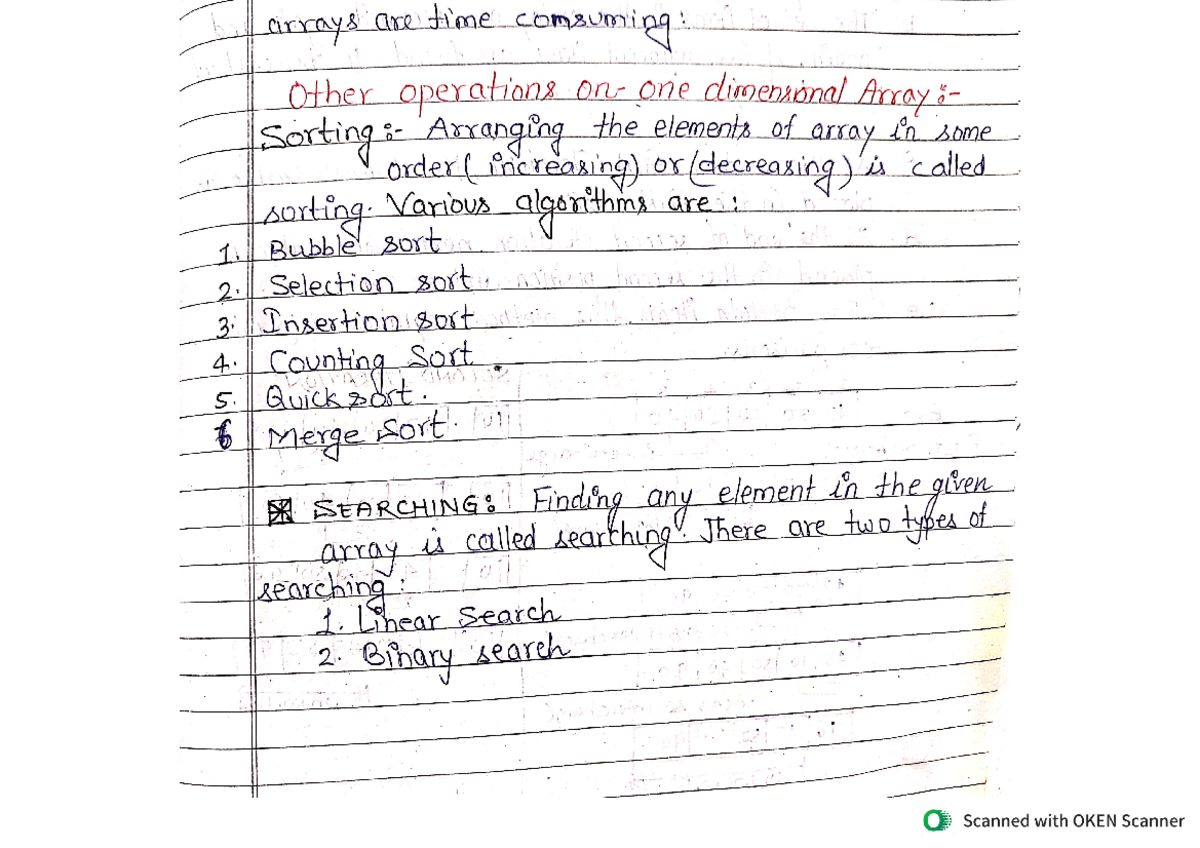 arrays are time comsuming:
Other operations on- one dimensional Array :-
Sorting :- Arranging the elements of array in some
order ( increasing) or (decreasing) is called
sorting. Various algorithms are :
1. Bubble sort
2. Selection sort
3. Insertion sort
4. Counting Sort
5. Quick sort.
6 Merge Sort.
SEARCHING: Finding any element in the given
array is called searching. There are two types of
searching:
1. Linear Search
2. Binary search
Scanned with OKEN Scanner